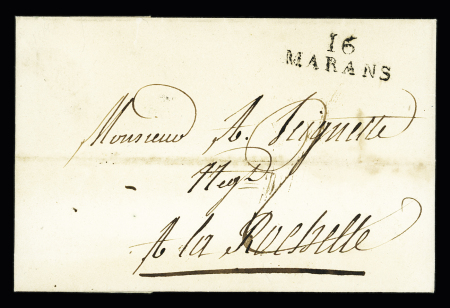 16
MARANS
Monsieur A. Seignette
Negt
A la Rochelle